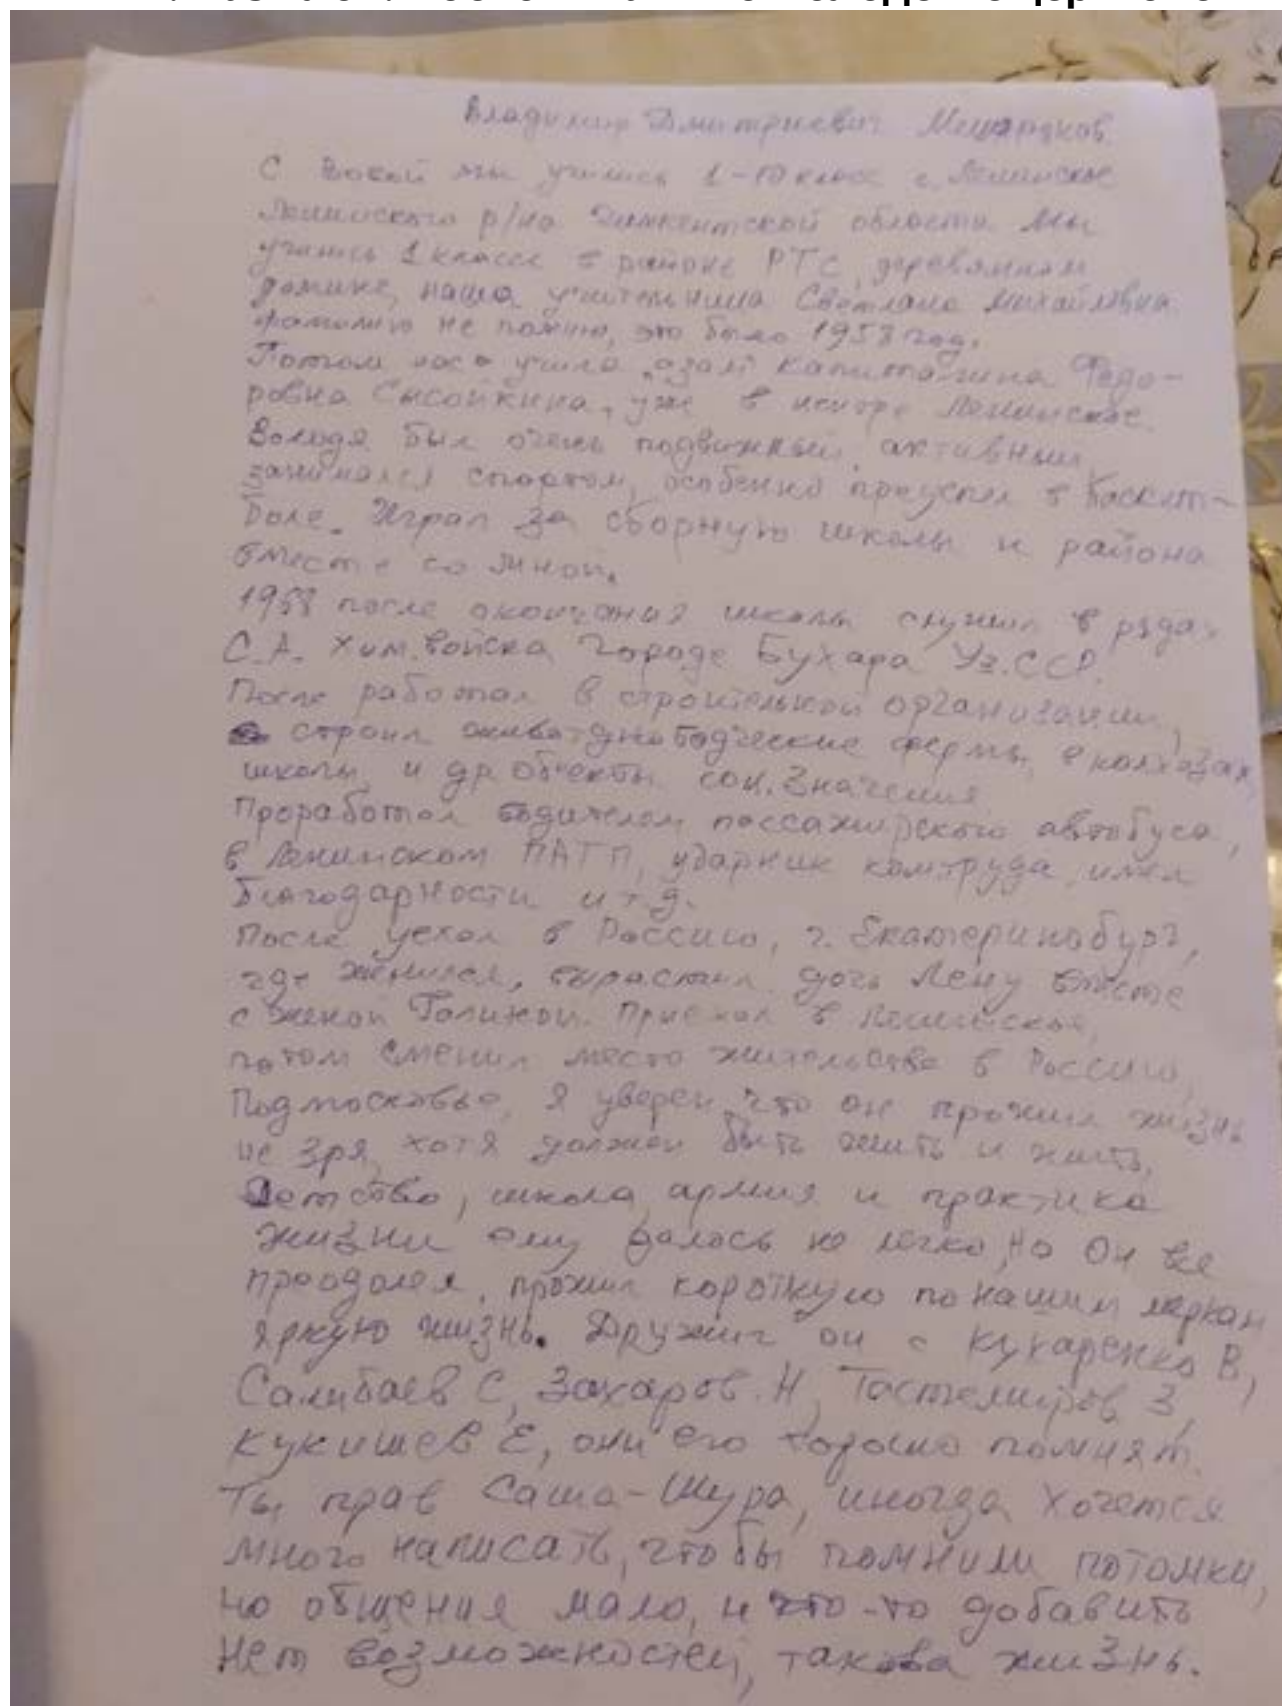 Владимир Дмитриевич
С Вовой мы учились 1-10 класс с. Ленинское
Ленинского р/на Чимкентской области. Мы
учились 1 класс в районе РТС, деревянном
домике, наша учительница Светлана Михайловна
фамилию не помню, это было 1958 год.
Потом нас учила Капиталина Федо-
ровна Сысойкина, уже в центре Ленинское.
Володя был очень подвижный, активный,
занимался спортом, особенно преуспел в баскет-
боле. Играл за сборную школы и района
вместе со мной.
1968 после окончания школы служил в рядах
С.А. Хим.войска городе Бухара Уз.ССР.
После работал в строительной организации,
строил животноводческие фермы, в колхозах,
школы, и др объекты соц. значения
Проработал водителем пассажирского автобуса,
в Ленинском ПАТП, ударник комтруда, имел
благодарности и т д.
После уехал в Россию, г. Екатеринобург,
где женился, вырастил дочь Лену вместе
с женой Галиной. Приехал в Ленинское,
потом сменил место жительства в Россию,
Подмосковье, Я уверен, что он прожил жизнь
не зря, хотя должен быть жить и жить,
Детство, школа, армия и практика
жизни ему далось не легко, но Он все
преодолел, прожил короткую по нашим меркам
яркую жизнь. Дружил он с Кухаренко В,
Салибаев С, Захаров Н, Тастемиров З,
Кукишев Е, они его хорошо помнят.
Ты прав Саша-Шура, иногда хочется
много написать, чтобы помнили потомки,
но общения мало, и что-то добавить
нет возможностей, такова жизнь.